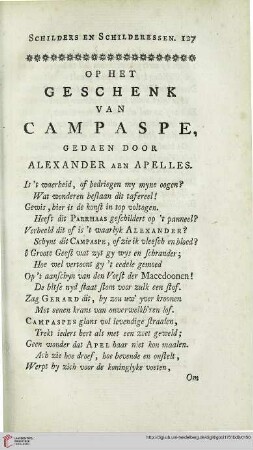 SCHILDERS EN SCHILDERESSEN. 127
OP HET
GESCHENK
VAN
CAMPASPE,
GEDAEN DOOR
ALEXANDER AEN APELLES.
Is 't waerheid, of bedriegen my myne oogen?
Wat wonderen beslaan dit tafereel!
Gewis, hier is de konst in top voltogen.
Heeft dit PARRHAAS geschildert op 't panneel?
Verbeeld dit of is 't waarlyk ALEXANDER?
Schynt dit CAMPASPE, of zie ik vleesch en bloed?
ô Groote Geest wat zyt gy wys en schrander;
Hoe wel vertoont gy 't eedele gemoed
Op 't aanschyn van den Vorst der Macedoonen!
De bitse nyd staat stom voor zulk een stof.
Zag GERARD dit, hy zou uw' yver kroonen
Met eenen krans van onverwelkb'ren lof.
CAMPASPES glans vol levendige straalen,
Trekt ieders hert als met een zoet geweld;
Geen wonder dat APEL haar niet kon maalen.
Ach zie hoe droef, hoe bevende en ontstelt,
Werpt hy zich voor de koninglyke voeten,
Om